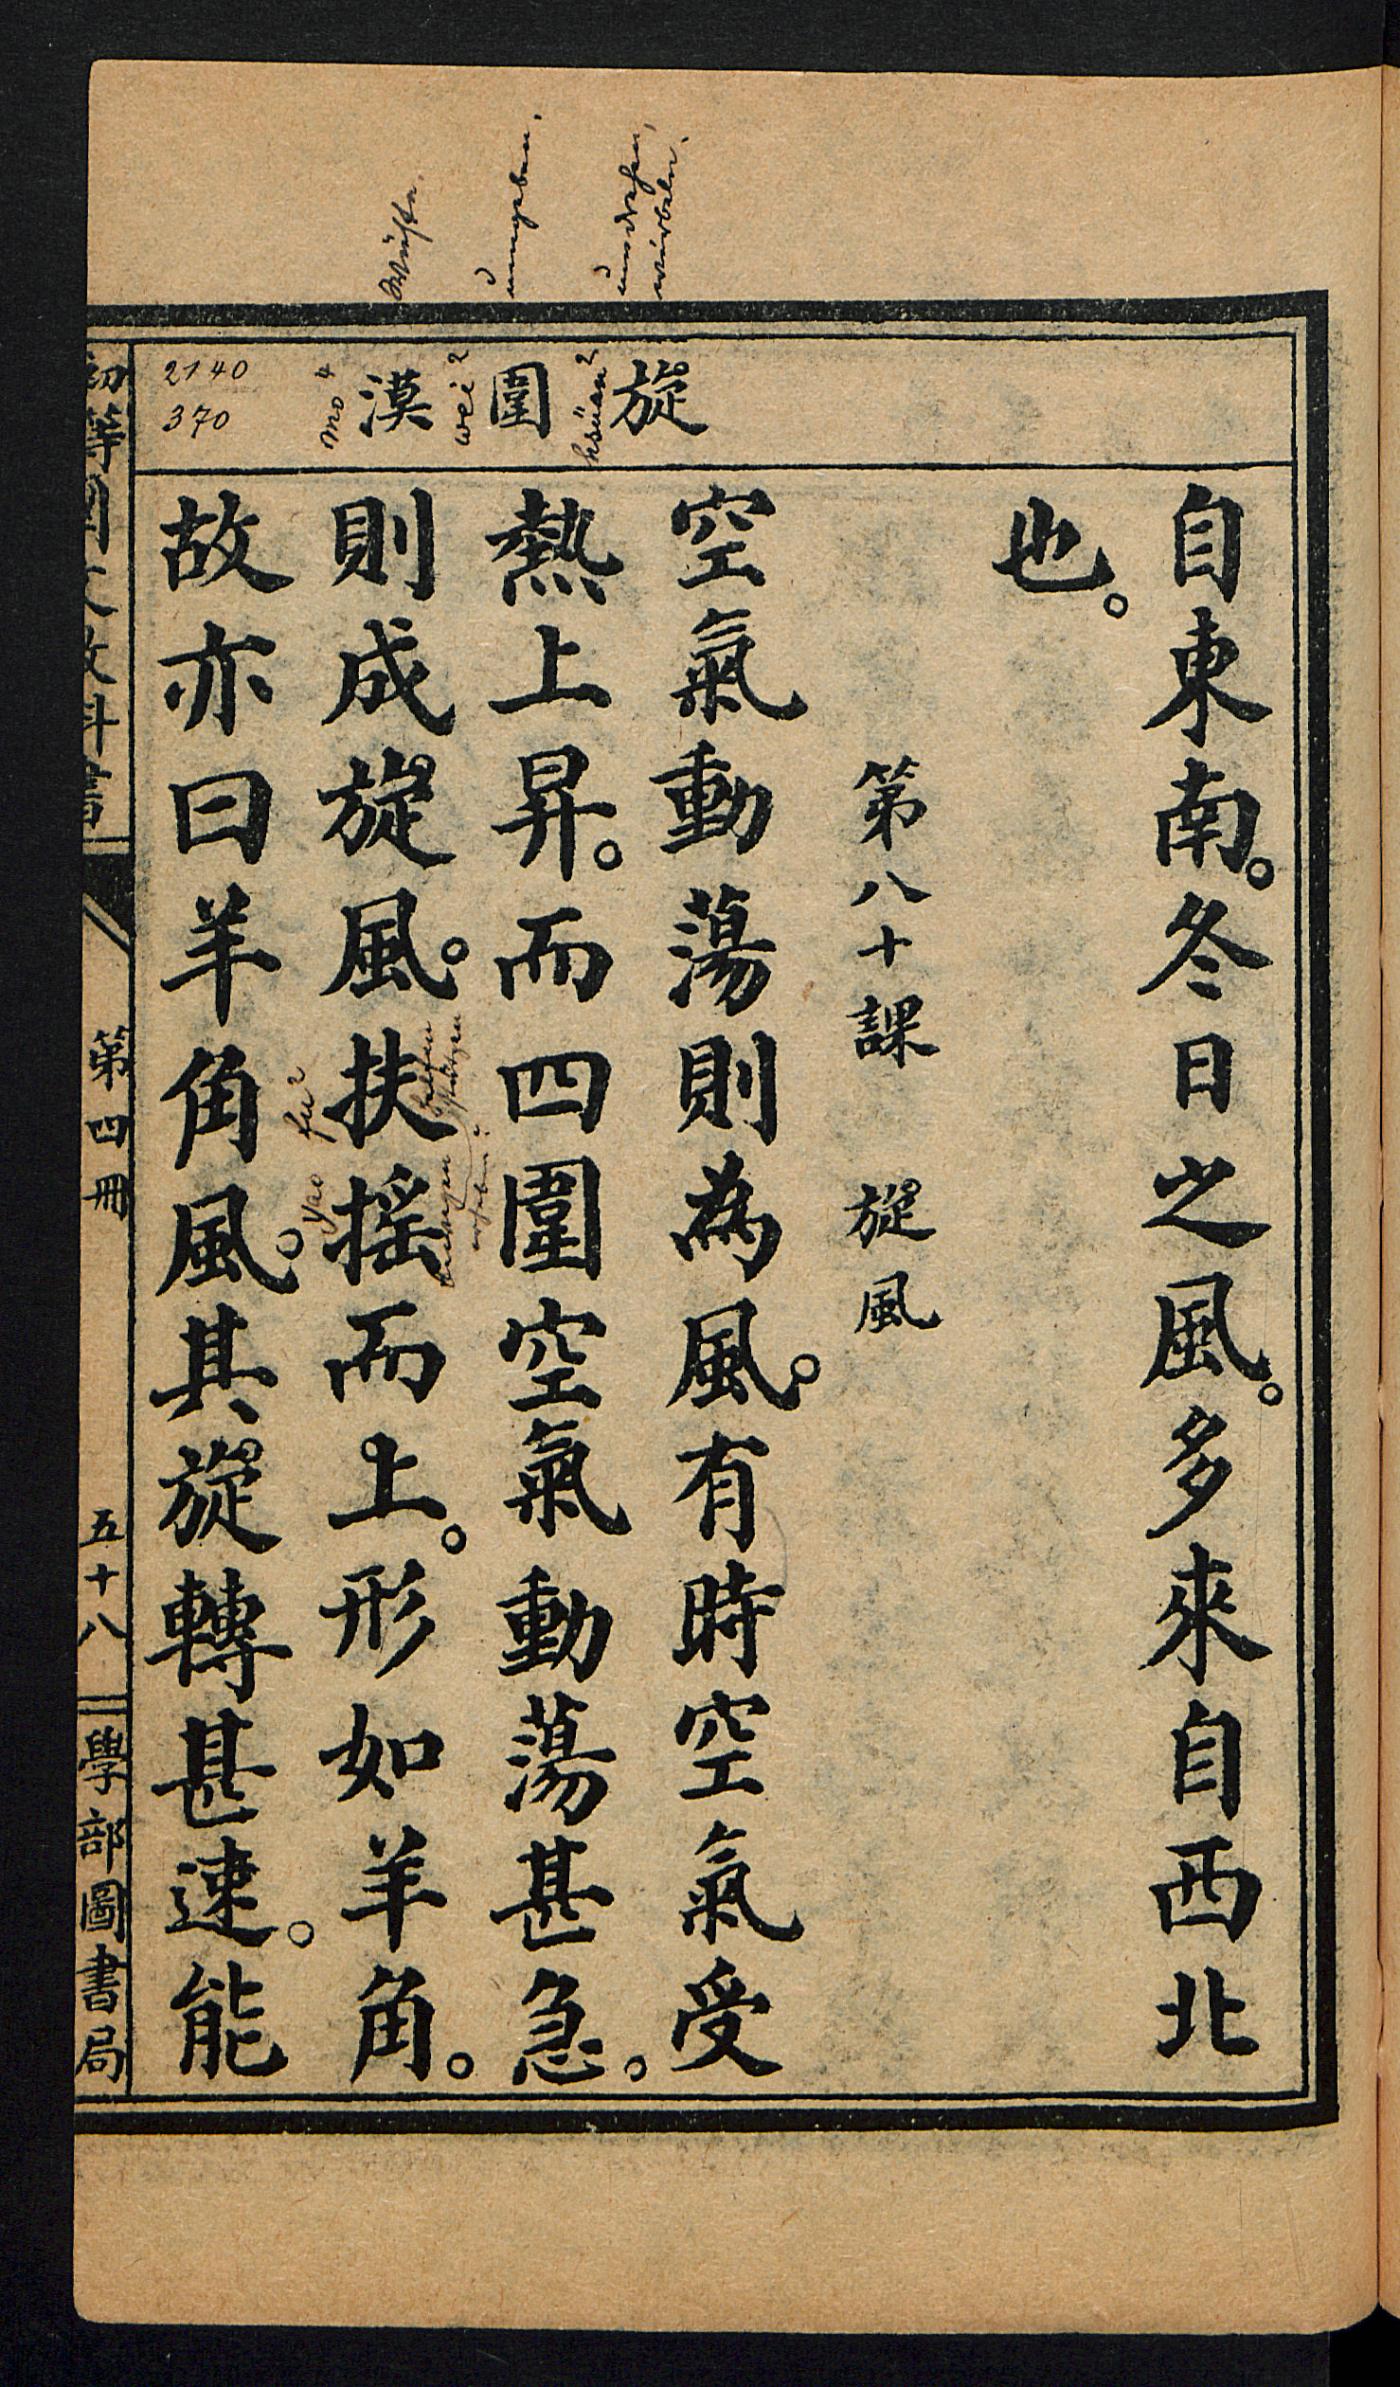 自東南。冬日之風。多來自西北
也。
第八十課 旋風
旋 圍 漠
hsüan² wei² mo⁴
umdrehen, wirbeln.
umgeben.
Wüste.
空氣動蕩則為風。有時空氣受
熱上昇。而四圍空氣動蕩甚急。
則成旋風。扶搖而上。形如羊角。
fu² yao
helfen stützen
bewegen
故亦曰羊角風。其旋轉甚速。能
2140
370
初等國文教科書
第四冊
五十八
學部圖書局